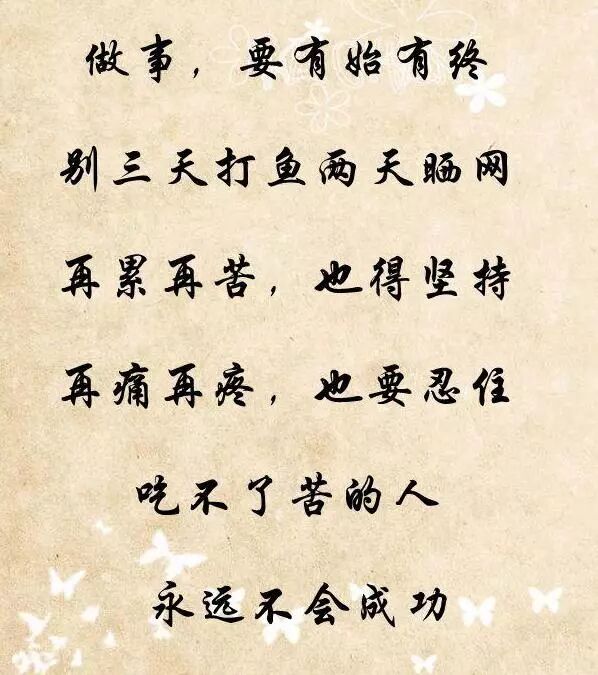 做事，要有始有终
别三天打鱼两天晒网
再累再苦，也得坚持
再痛再疼，也要忍住
吃不了苦的人
永远不会成功